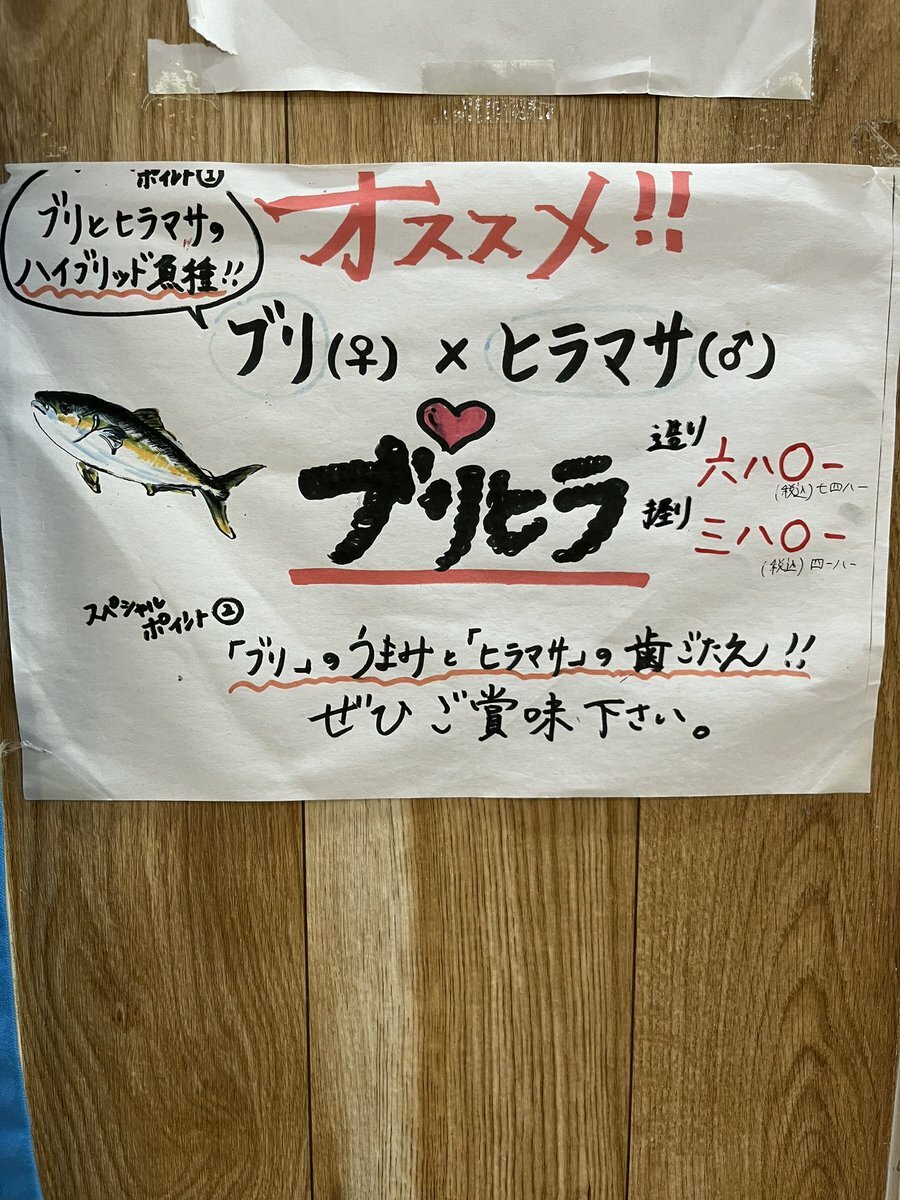 ポイント①
ブリとヒラマサの
ハイブリッド魚種!!
オススメ!!
ブリ(♀) × ヒラマサ(♂)
ブリヒラ
造り 六八〇ー
(税込)七四八ー
握り 三八〇ー
(税込)四一八ー
スペシャル
ポイント②
「ブリ」のうまみと「ヒラマサ」の歯ごたえ!!
ぜひご賞味下さい。